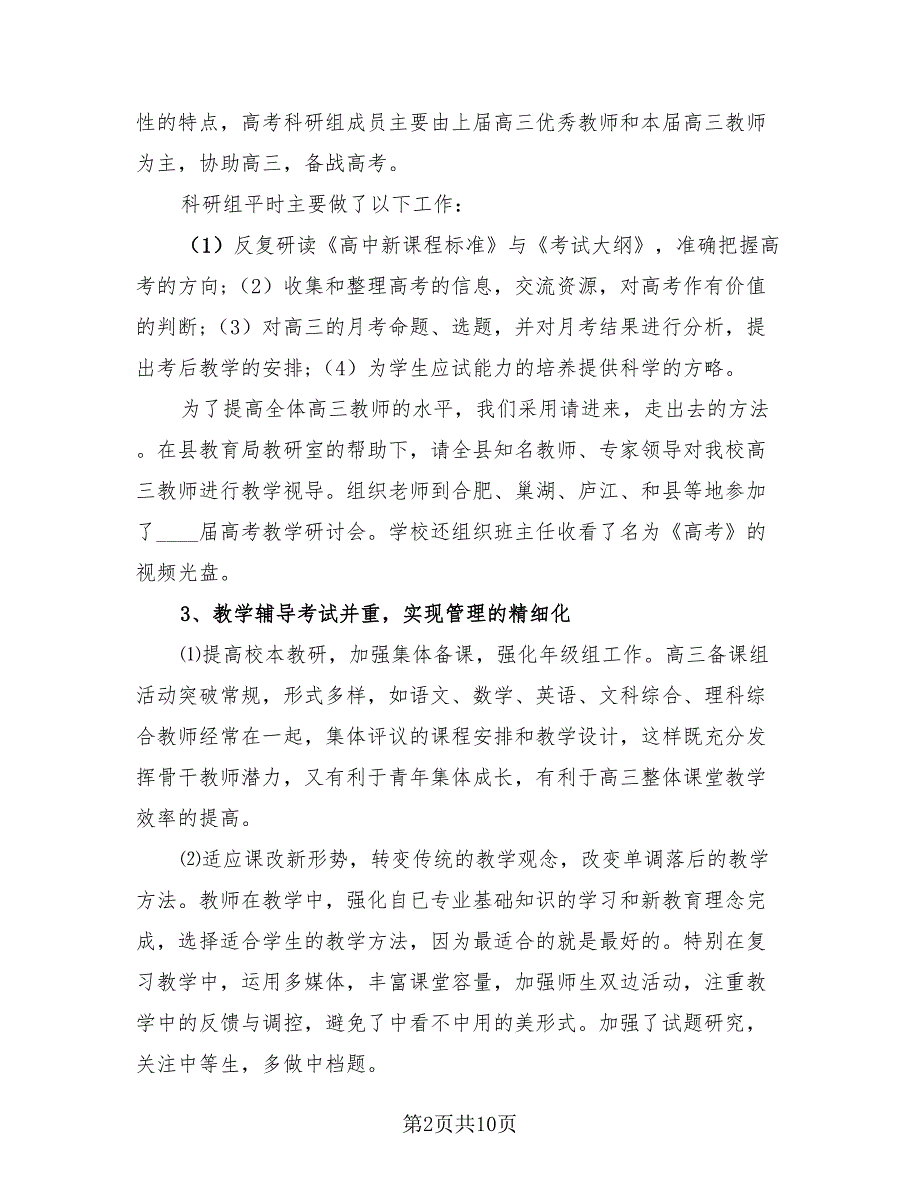 性的特点，高考科研组成员主要由上届高三优秀教师和本届高三教师
为主，协助高三，备战高考。
科研组平时主要做了以下工作：
（1）反复研读《高中新课程标准》与《考试大纲》，准确把握高
考的方向;（2）收集和整理高考的信息，交流资源，对高考作有价值
的判断;（3）对高三的月考命题、选题，并对月考结果进行分析，提
出考后教学的安排;（4）为学生应试能力的培养提供科学的方略。
为了提高全体高三教师的水平，我们采用请进来，走出去的方法
。在县教育局教研室的帮助下，请全县知名教师、专家领导对我校高
三教师进行教学视导。组织老师到合肥、巢湖、庐江、和县等地参加
了____届高考教学研讨会。学校还组织班主任收看了名为《高考》的
视频光盘。
3、教学辅导考试并重，实现管理的精细化
⑴提高校本教研，加强集体备课，强化年级组工作。高三备课组
活动突破常规，形式多样，如语文、数学、英语、文科综合、理科综
合教师经常在一起，集体评议的课程安排和教学设计，这样既充分发
挥骨干教师潜力，又有利于青年集体成长，有利于高三整体课堂教学
效率的提高。
⑵适应课改新形势，转变传统的教学观念，改变单调落后的教学
方法。教师在教学中，强化自已专业基础知识的学习和新教育理念完
成，选择适合学生的教学方法，因为最适合的就是最好的。特别在复
习教学中，运用多媒体，丰富课堂容量，加强师生双边活动，注重教
学中的反馈与调控，避免了中看不中用的美形式。加强了试题研究，
关注中等生，多做中档题。
第2页共10页